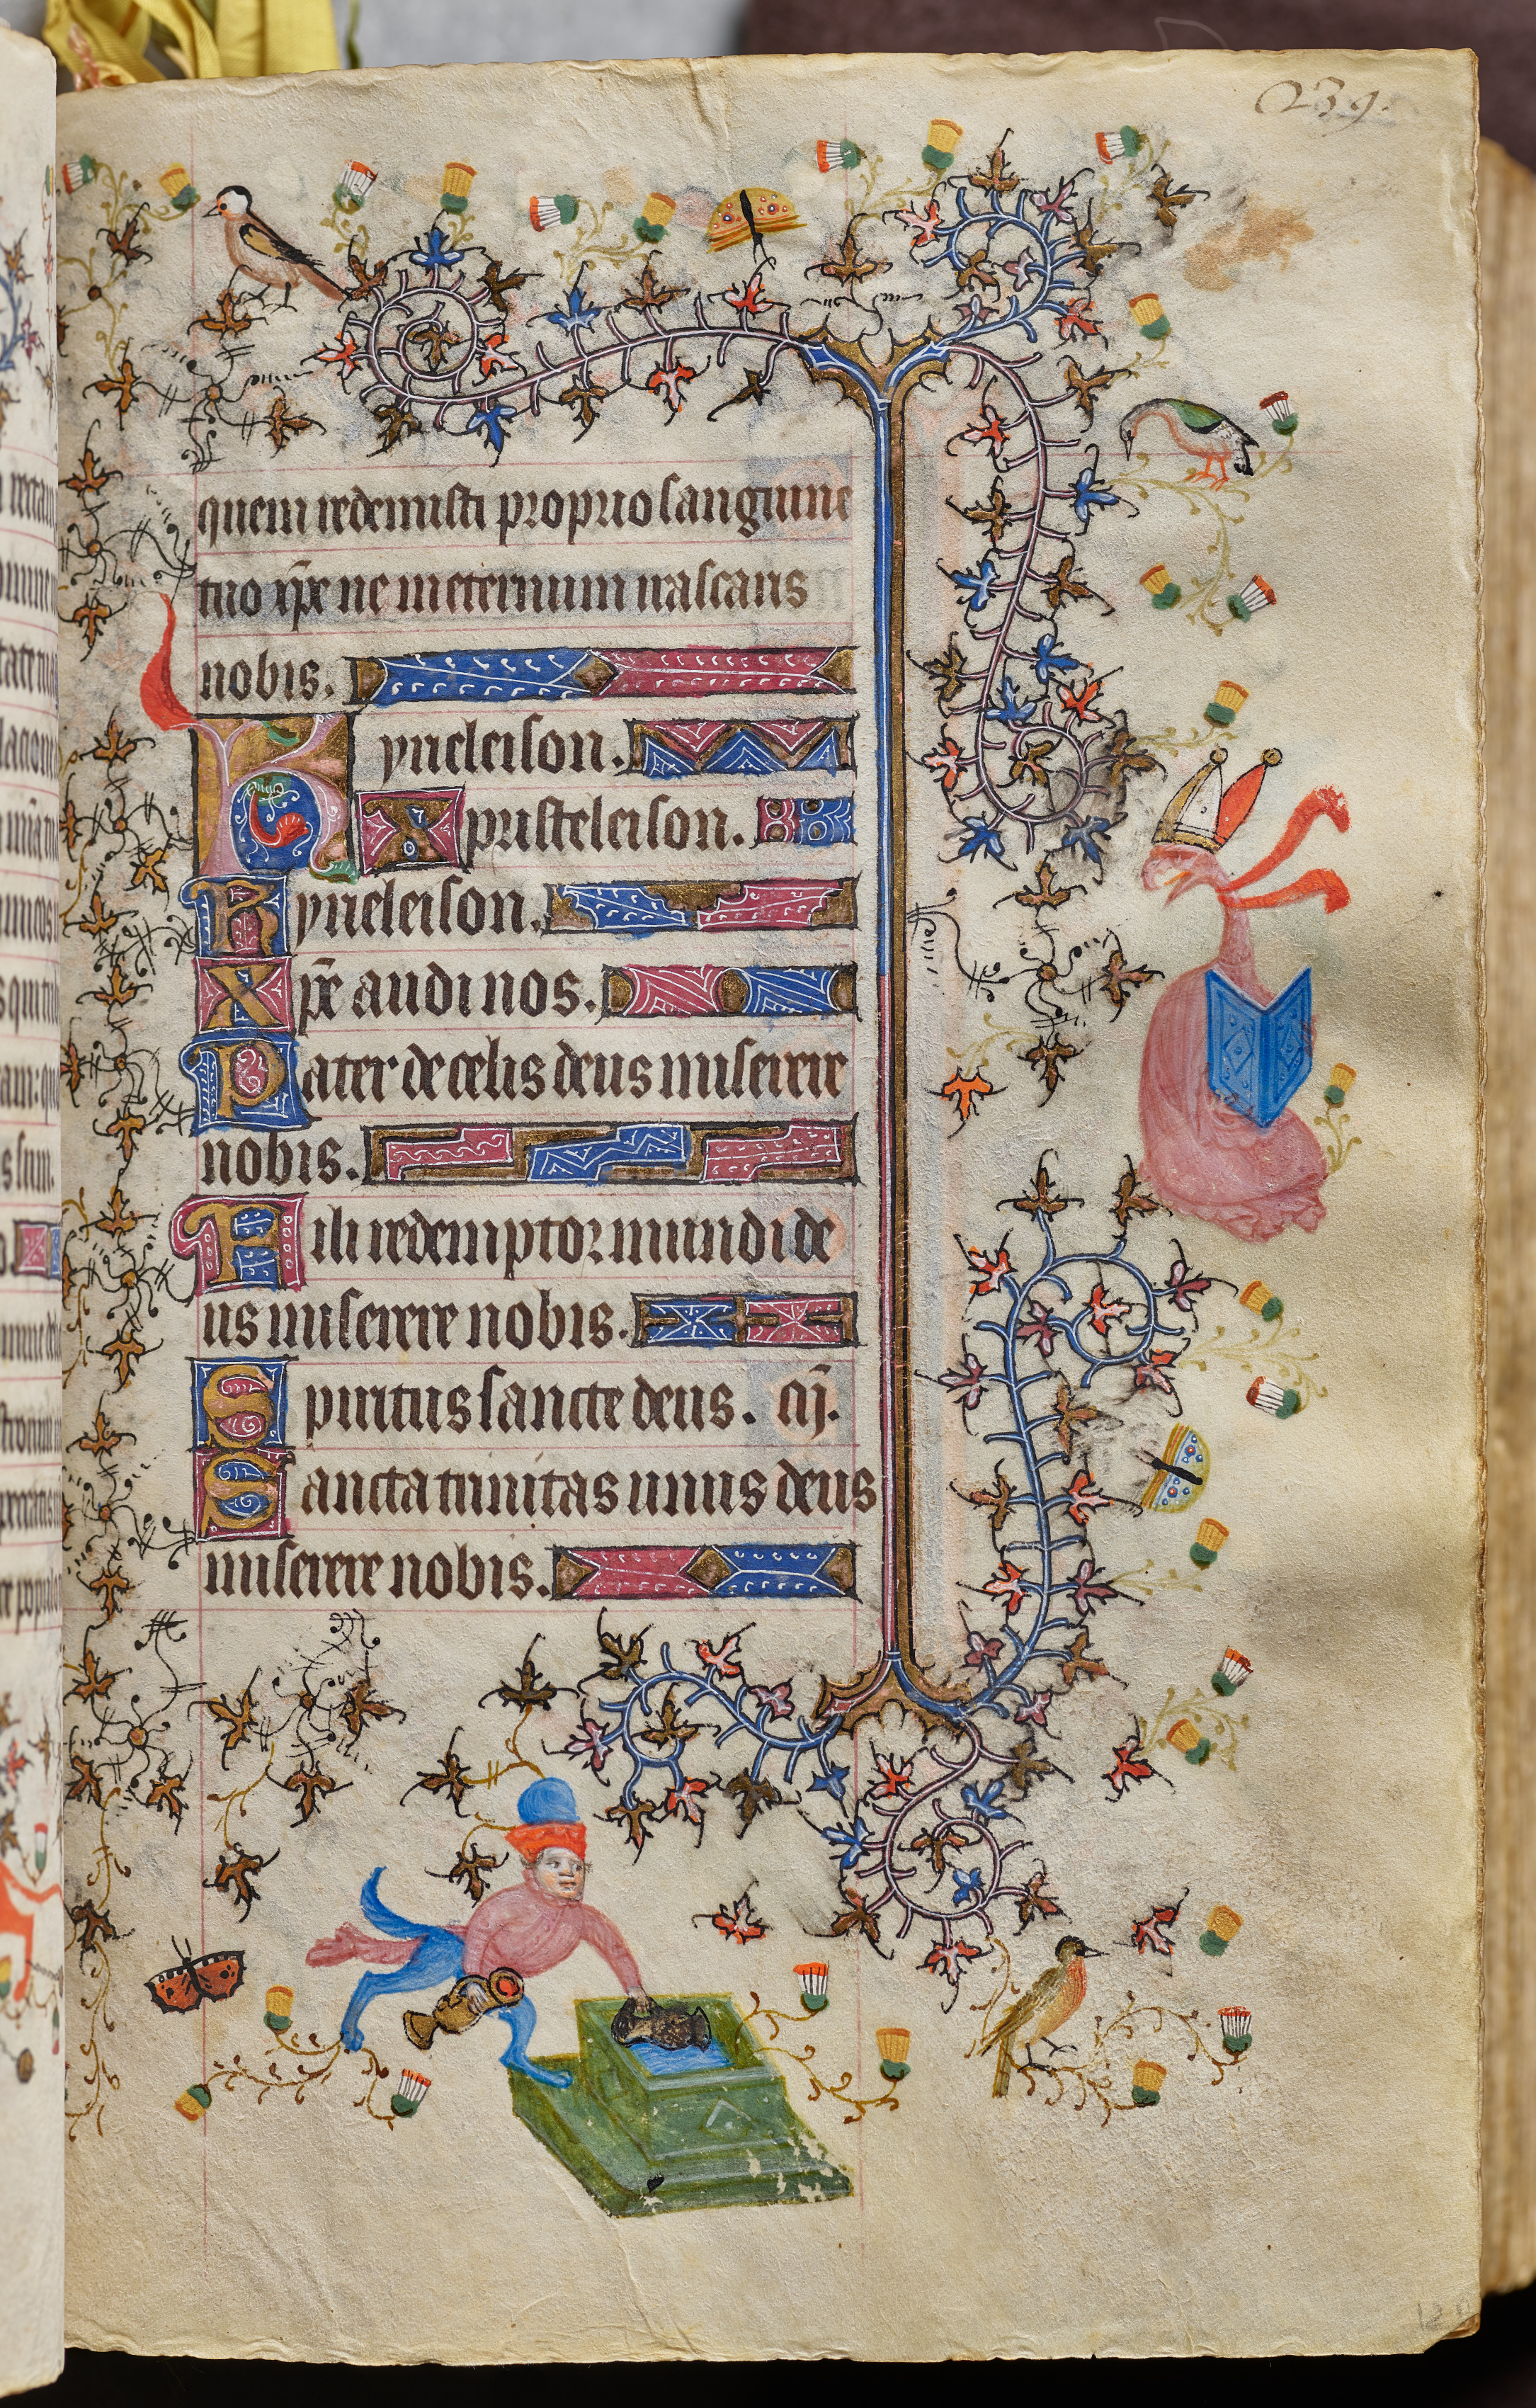 239.
quem redemisti proprio sanguine
tuo xp̄e ne in eternum irascaris
nobis.
Kyrieleison.
Xpristeleison.
Kyrieleison.
Xp̄e audi nos.
Pater de celis deus miserere
nobis.
Fili redemptor mundi de
us miserere nobis.
Spiritus sancte deus. m̄.
Sancta trinitas unus deus
miserere nobis.